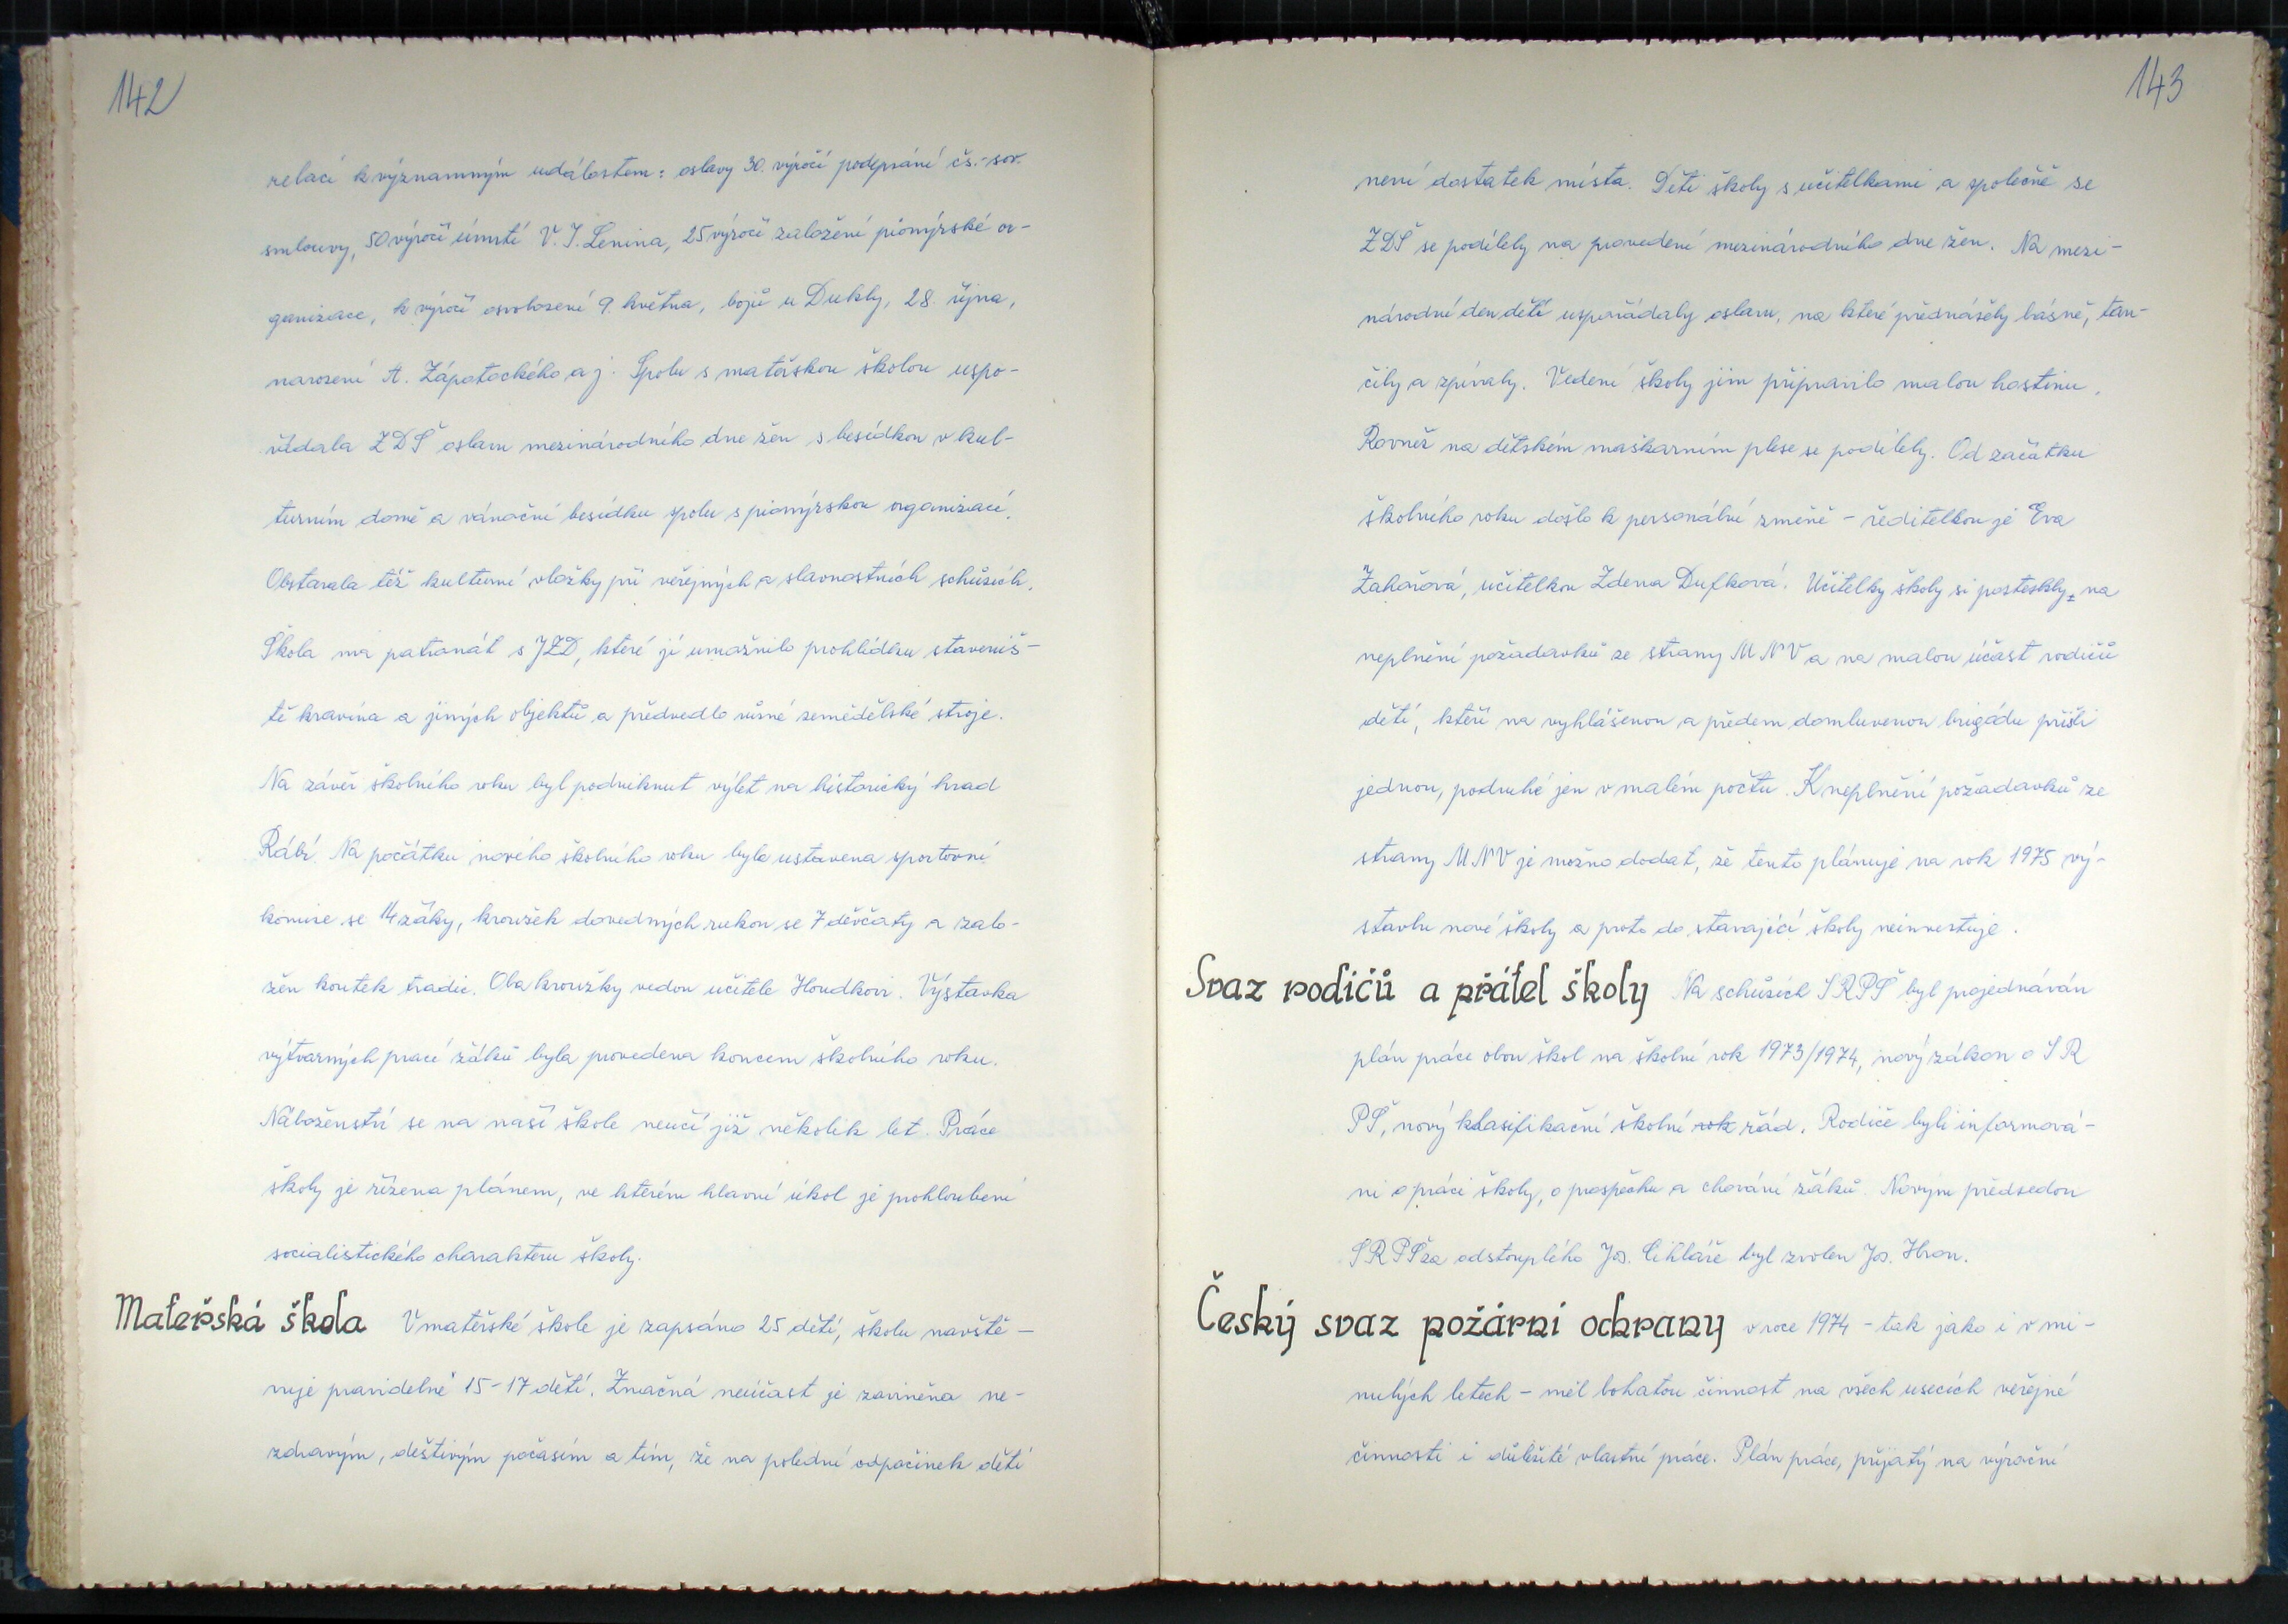 142
relací k významným událostem: oslavy 30. výročí podepsání čs.-sov.
smlouvy, 50 výročí úmrtí V. I. Lenina, 25 výročí založení pionýrské or-
ganizace, k výročí osvobození 9. května, bojů u Dukly, 28. října,
narození A. Zápotockého a j. Spolu s mateřskou školou uspo-
řádala ZDŠ oslavu mezinárodního dne žen s besídkou v kul-
turním domě a vánoční besídku spolu s pionýrskou organizací.
Obstarala též kulturní vložky při veřejných a slavnostních schůzích.
Škola má patronát s JZD, které jí umožnilo prohlídku staveniš-
tě kravína a jiných objektů a předvedlo různé zemědělské stroje.
Na závěr školního roku byl podniknut výlet na historický hrad
Rábí. Na počátku nového školního roku byla ustavena sportovní
komise se 14 žáky, kroužek dovedných rukou se 7 děvčaty a zalo-
žen koutek tradic. Oba kroužky vedou učitelé Houdkovi. Výstavka
výtvarných prací žáků byla provedena koncem školního roku.
Náboženství se na naší škole neučí již několik let. Práce
školy je řízena plánem, ve kterém hlavní úkol je prohloubení
socialistického charakteru školy.
Mateřská škola V mateřské škole je zapsáno 25 dětí, školu navště-
vuje pravidelně 15-17 dětí. Značná neúčast je zaviněna ne-
zdravým, deštivým počasím a tím, že na polední odpočinek dětí
143
není dostatek místa. Děti školy s učitelkami a společně se
ZDŠ se podílely na provedení mezinárodního dne žen. Na mezi-
národní den dětí uspořádaly oslavu, na které přednášely básně, tan-
čily a zpívaly. Vedení školy jim připravilo malou hostinu.
Rovněž na dětském maškarním plese se podílely. Od začátku
školního roku došlo k personální změně - ředitelkou je Eva
Zahořová, učitelkou Zdena Dufková. Učitelky školy si posteskly na
neplnění požadavků ze strany MNV a na malou účast rodičů
dětí, kteří na vyhlášenou a předem domluvenou brigádu přišli
jednou, podruhé jen v malém počtu. K neplnění požadavků ze
strany MNV je možno dodat, že tento plánuje na rok 1975 vý-
stavbu nové školy a proto do stávající školy neinvestuje.
Svaz rodičů a přátel školy Na schůzích SRPŠ byl projednáván
plán práce obou škol na školní rok 1973/1974, nový zákon o SR
PŠ, nový klasifikační školní rok řád. Rodiče byli informová-
ni o práci školy, o prospěchu a chování žáků. Novým předsedou
SRPŠ za odstouplého Jos. Cihláře byl zvolen Jos. Hron.
Český svaz požární ochrany v roce 1974 - tak jako i v mi-
nulých letech - měl bohatou činnost na všech usecích veřejné
činnosti i důležité vlastní práce. Plán práce, přijatý na výroční